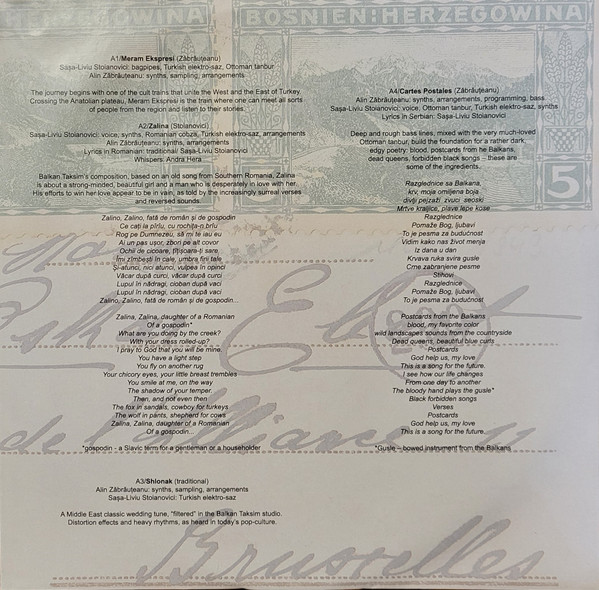 BOSNIEN:HERZEGOWINA
A1/Meram Ekspresi (Zăbrăuțeanu)
Sașa-Liviu Stoianovici: bagpipes, Turkish elektro-saz, Ottoman tanbur
Alin Zăbrăuțeanu: synths, sampling, arrangements
The journey begins with one of the cult trains that unite the West and the East of Turkey.
Crossing the Anatolian plateau, Meram Ekspresi is the train where one can meet all sorts
of people from the region and listen to their stories.
A2/Zalina (Stoianovici)
Sașa-Liviu Stoianovici: voice, synths, Romanian cobza, Turkish elektro-saz, arrangements
Alin Zăbrăuțeanu: synths, arrangements
Lyrics in Romanian: traditional/ Sașa-Liviu Stoianovici
Whispers: Andra Hera
Balkan Taksim's composition, based on an old song from Southern Romania, Zalina
is about a strong-minded, beautiful girl and a man who is desperately in love with her.
His efforts to win her love appear to be in vain, as told by the increasingly surreal verses
and reversed sounds.
Zalino, Zalino, fată de român și de gospodin
Ce cați la pîrîu, cu rochița-n brîu
Rog pe Dumnezeu, să mi te iau eu
Ai un pas ușor, zbori pe alt covor
Ochii de cicoare, țîțișoara-ți sare
Îmi zîmbești în cale, umbra firii tale
Și-atunci, nici atunci, vulpea în opinci
Văcar după curci, văcar după curci
Lupul în nădragi, cioban după vaci
Lupul în nădragi, cioban după vaci
Zalino, Zalino, fată de român și de gospodin...
Zalina, Zalina, daughter of a Romanian
Of a gospodin*
What are you doing by the creek?
With your dress rolled-up?
I pray to God that you will be mine.
You have a light step
You fly on another rug
Your chicory eyes, your little breast trembles
You smile at me, on the way
The shadow of your temper
Then, and not even then
The fox in sandals, cowboy for turkeys
The wolf in pants, shepherd for cows
Zalina, Zalina, daughter of a Romanian
Of a gospodin...
*gospodin - a Slavic term for a gentleman or a householder
A3/Shlonak (traditional)
Alin Zăbrăuțeanu: synths, sampling, arrangements
Sașa-Liviu Stoianovici: Turkish elektro-saz
A Middle East classic wedding tune, "filtered" in the Balkan Taksim studio.
Distortion effects and heavy rhythms, as heard in today's pop-culture.
A4/Cartes Postales (Zăbrăuțeanu)
Alin Zăbrăuțeanu: synths, arrangements, programming, bass
Sașa-Liviu Stoianovici: voice, Ottoman tanbur, Turkish elektro-saz, synths
Lyrics in Serbian: Sașa-Liviu Stoianovici
Deep and rough bass lines, mixed with the very much-loved
Ottoman tanbur, build the foundation for a rather dark,
edgy poetry: blood, postcards from he Balkans,
dead queens, forbidden black songs – these are
some of the ingredients.
5
Razglednice sa Balkana,
krv, moja omiljena boja
divlji pejzaži zvuci seoski
Mrtve kraljice, plave lepe kose
Razglednice
Pomaže Bog, ljubavi
To je pesma za budućnost
Vidim kako nas život menja
Iz dana u dan
Krvava ruka svira gusle
Crne zabranjene pesme
Stihovi
Razglednice
Pomaže Bog, ljubavi
To je pesma za budućnost
Postcards from the Balkans
blood, my favorite color
wild landscapes sounds from the countryside
Dead queens, beautiful blue curls
Postcards
God help us, my love
This is a song for the future.
I see how our life changes
From one day to another
The bloody hand plays the gusle*
Black forbidden songs
Verses
Postcards
God help us, my love
This is a song for the future...
*Gusle – bowed instrument from the Balkans
Bruxelles